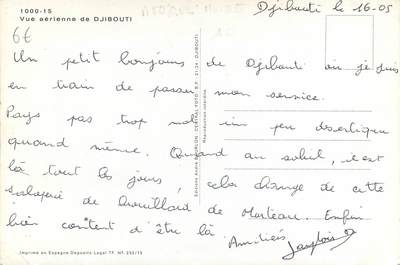 1000-15
Vue aérienne de DJIBOUTI
Djibouti le 16-05
6€
Un petit bonjour de Djibouti où je suis
en train de passer mon service.
Pays pas trop mal un peu désertique
quand même. Quand au soleil, il est
là tout les jours, cela change de cette
de brouillard de Morteau. Enfin
bien content d'être là
Amitiés
Reproduction interdite
Imprimé en Espagne Depósito Legal TF. NF. 255/15